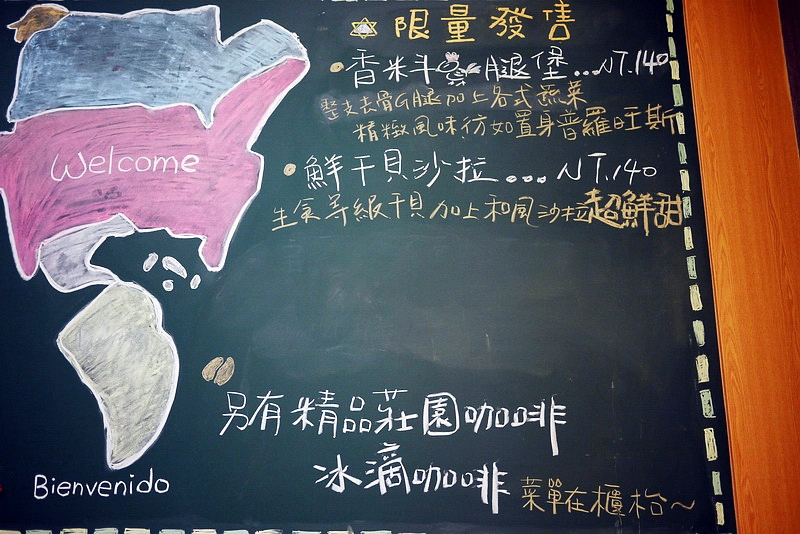 限量發售
香米半雞腿堡...NT.140
整支去骨G腿加上各式蔬菜
精緻風味彷如置身普羅旺斯
鮮干貝沙拉...NT.140
生食等級干貝加上和風沙拉超鮮甜
Welcome
另有精品莊園咖啡
冰滴咖啡 菜單在櫃枱~
Bienvenido